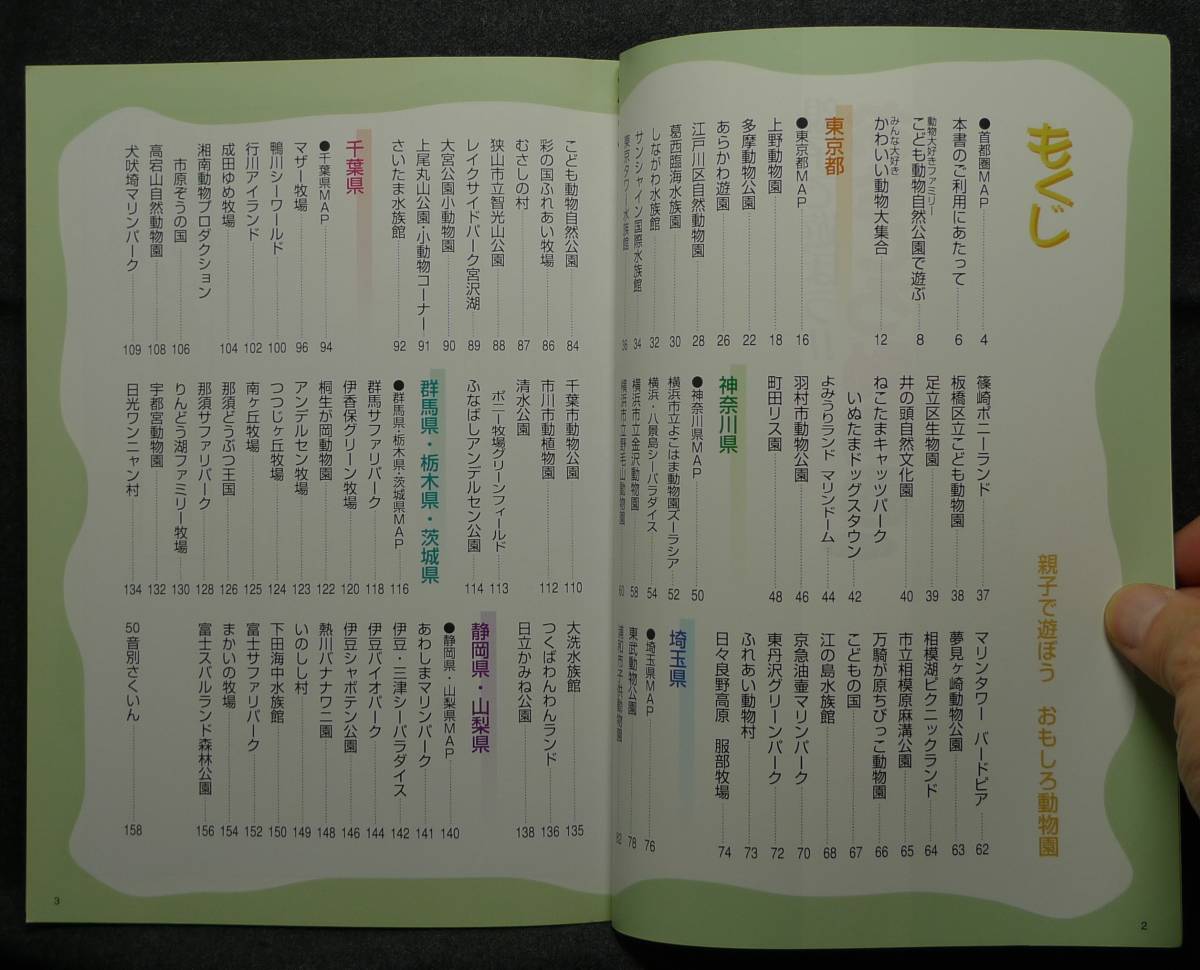 もくじ
親子で遊ぼう　おもしろ動物園
●首都圏MAP 4
本書のご利用にあたって 6
動物大好きファミリー
こども動物自然公園で遊ぶ 8
みんな大好き
かわいい動物大集合 12
東京都
●東京都MAP 16
上野動物園 18
多摩動物公園 22
あらかわ遊園 26
江戸川区自然動物園 28
葛西臨海水族園 30
しながわ水族館 32
サンシャイン国際水族館 34
東京タワー水族館 36
篠崎ポニーランド 37
板橋区立こども動物園 38
足立区生物園 39
井の頭自然文化園 40
ねこたまキャッツパーク
いぬたまドッグスタウン 42
よみうりランド マリンドーム 44
羽村市動物公園 46
町田リス園 48
神奈川県
●神奈川県MAP 50
横浜市立よこはま動物園ズーラシア 52
横浜・八景島シーパラダイス 54
横浜市立金沢動物園 58
横浜市立野毛山動物園 60
マリンタワー バードピア 62
夢見ヶ崎動物公園 63
相模湖ピクニックランド 64
市立相模原麻溝公園 65
万騎が原ちびっこ動物園 66
こどもの国 67
江の島水族館 68
京急油壷マリンパーク 70
東丹沢グリーンパーク 72
ふれあい動物村 73
日々良野高原 服部牧場 74
埼玉県
●埼玉県MAP 76
東武動物公園 78
浦和市子供動物園 82
2
こども動物自然公園 84
彩の国ふれあい牧場 86
むさしの村 87
狭山市立智光山公園 88
レイクサイドパーク宮沢湖 89
大宮公園小動物園 90
上尾丸山公園・小動物コーナー 91
さいたま水族館 92
千葉県
●千葉県MAP 94
マザー牧場 96
鴨川シーワールド 100
行川アイランド 102
成田ゆめ牧場 104
湘南動物プロダクション
市原ぞうの国 106
高宕山自然動物園 108
犬吠埼マリンパーク 109
千葉市動物公園 110
市川市動植物園 112
清水公園
ポニー牧場グリーンフィールド 113
ふなばしアンデルセン公園 114
群馬県・栃木県・茨城県
●群馬県・栃木県・茨城県MAP 116
群馬サファリパーク 118
伊香保グリーン牧場 120
桐生が岡動物園 122
アンデルセン牧場 123
つつじヶ丘牧場 124
南ヶ丘牧場 125
那須どうぶつ王国 126
那須サファリパーク 128
りんどう湖ファミリー牧場 130
宇都宮動物園 132
日光ワンニャン村 134
大洗水族館 135
つくばわんわんランド 136
日立かみね公園 138
静岡県・山梨県
●静岡県・山梨県MAP 140
あわしまマリンパーク 141
伊豆・三津シーパラダイス 142
伊豆バイオパーク 144
伊豆シャボテン公園 146
熱川バナナワニ園 148
いのしし村 149
下田海中水族館 150
富士サファリパーク 152
まかいの牧場 154
富士スバルランド森林公園 156
50音別さくいん 158
3